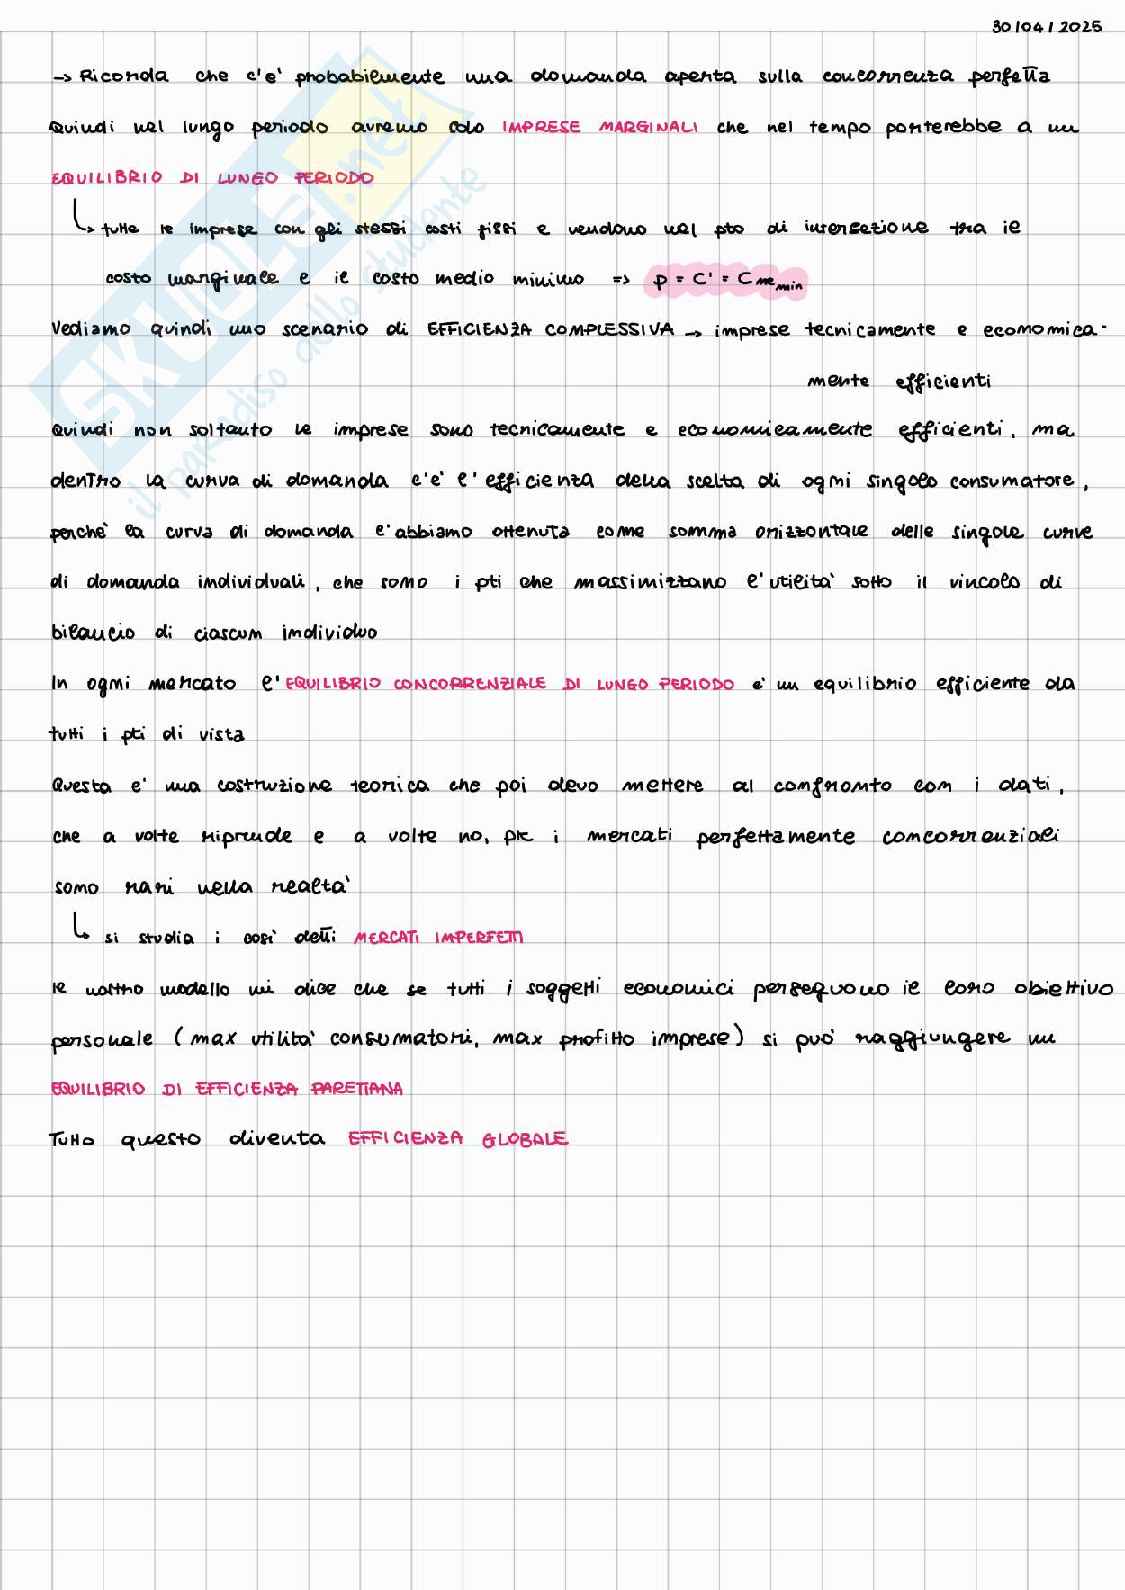 30/04/2025
-> Ricorda che c'e' probabilmente una domanda aperta sulla concorrenza perfetta
Quindi nel lungo periodo avremo solo IMPRESE MARGINALI che nel tempo porterebbe a un
EQUILIBRIO DI LUNGO PERIODO
↳ tutte le imprese con gli stessi costi fissi e vendono nel pto di intersezione tra il
costo marginale e il costo medio minimo => p = C' = Cme min
Vediamo quindi uno scenario di EFFICIENZA COMPLESSIVA -> imprese tecnicamente e economica-
mente efficienti
Quindi non soltanto le imprese sono tecnicamente e economicamente efficienti, ma
dentro la curva di domanda c'e' l'efficienza della scelta di ogni singolo consumatore,
perche' la curva di domanda l'abbiamo ottenuta come somma orizzontale delle singole curve
di domanda individuali, che sono i pti che massimizzano l'utilita' sotto il vincolo di
bilancio di ciascun individuo
In ogni mercato l'EQUILIBRIO CONCORRENZIALE DI LUNGO PERIODO e' un equilibrio efficiente da
tutti i pti di vista
Questa e' una costruzione teorica che poi devo mettere al confronto con i dati,
che a volte riprende e a volte no, pk i mercati perfettamente concorrenziali
sono rari nella realta'
↳ si studia i cosi' detti MERCATI IMPERFETTI
Il nostro modello mi dice che se tutti i soggetti economici perseguono il loro obiettivo
personale (max utilita' consumatori, max profitto imprese) si puo' raggiungere un
EQUILIBRIO DI EFFICIENZA PARETIANA
Tutto questo diventa EFFICIENZA GLOBALE
SKUOLA.net
il paradiso dello studente